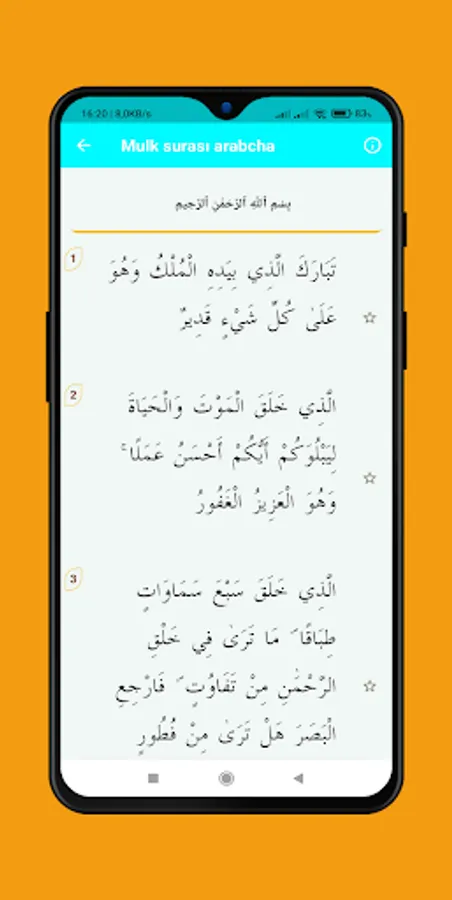 16:20 | 8,0KB/s 83%
Mulk surası arabcha
بِسْمِ ٱللَّهِ ٱلرَّحْمَٰنِ ٱلرَّحِيمِ
1
تَبَارَكَ الَّذِي بِيَدِهِ الْمُلْكُ وَهُوَ
عَلَىٰ كُلِّ شَيْءٍ قَدِيرٌ
2
الَّذِي خَلَقَ الْمَوْتَ وَالْحَيَاةَ
لِيَبْلُوَكُمْ أَيُّكُمْ أَحْسَنُ عَمَلًا ۚ
وَهُوَ الْعَزِيزُ الْغَفُورُ
3
الَّذِي خَلَقَ سَبْعَ سَمَاوَاتٍ
طِبَاقًا ۖ مَا تَرَىٰ فِي خَلْقِ
الرَّحْمَٰنِ مِنْ تَفَاوُتٍ ۖ فَارْجِعِ
الْبَصَرَ هَلْ تَرَىٰ مِنْ فُطُورٍ